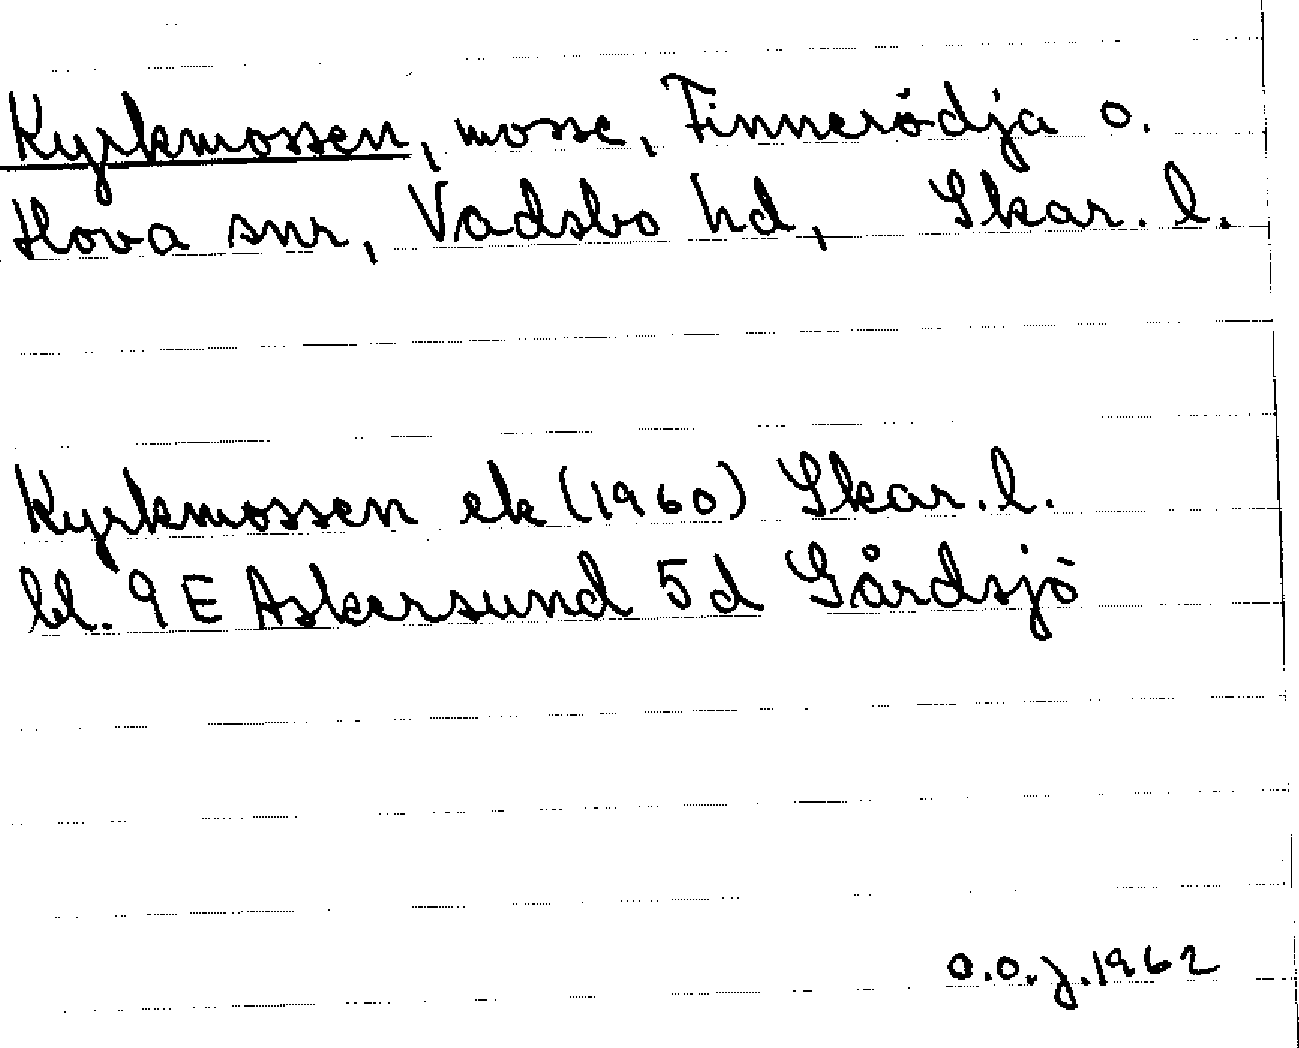 Kyrkmossen, mosse, Finnerödja o.
Hova snr, Vadsbo hd, Skar. l.
Kyrkmossen ek (1960) Skar. l.
bl. 9 E Askersund 5d Gårdsjö
O.O.J. 1962